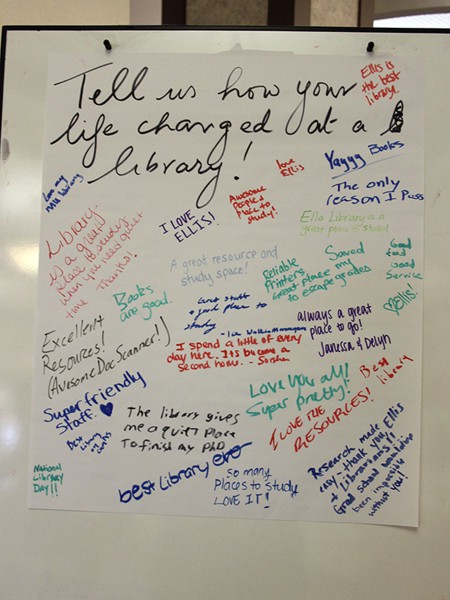 Tell us how your
life changed at a
library!
Ellis is
the best
library.
Love my
Library
love
Ellis
Yayyy Books
The only
reason I Pass
Awesome
Place to
study!
I LOVE
ELLIS!
Library
is a great
place to study
when you need quiet
time
Thanks!
Ellis Library is a
great place to study!
A great resource and
study space!
Saved
my
grades
Good
food
Good
Service
Reliable
Printers
Great Place
to escape
Books
are good.
Great staff
& good place to
study
♡Ellis!
always a great
place to go!
Janessa & Delyn
Excellent
Resources!
(Awesome Doc Scanner!)
I spend a little of every
day here. Its become a
second home.
Best
library
Love you all!
Super pretty!
Super friendly
Staff. ♥
Best
Library
The library gives
me a quiet Place
To finish my PhD
I LOVE THE
RESOURCES!
best Library ever
SO many
Places to study
LOVE IT!
Research made
easy - thank you Ellis
+ Librarians!!
Grad school would've
been impossible
without you!
National
Library
Day!!